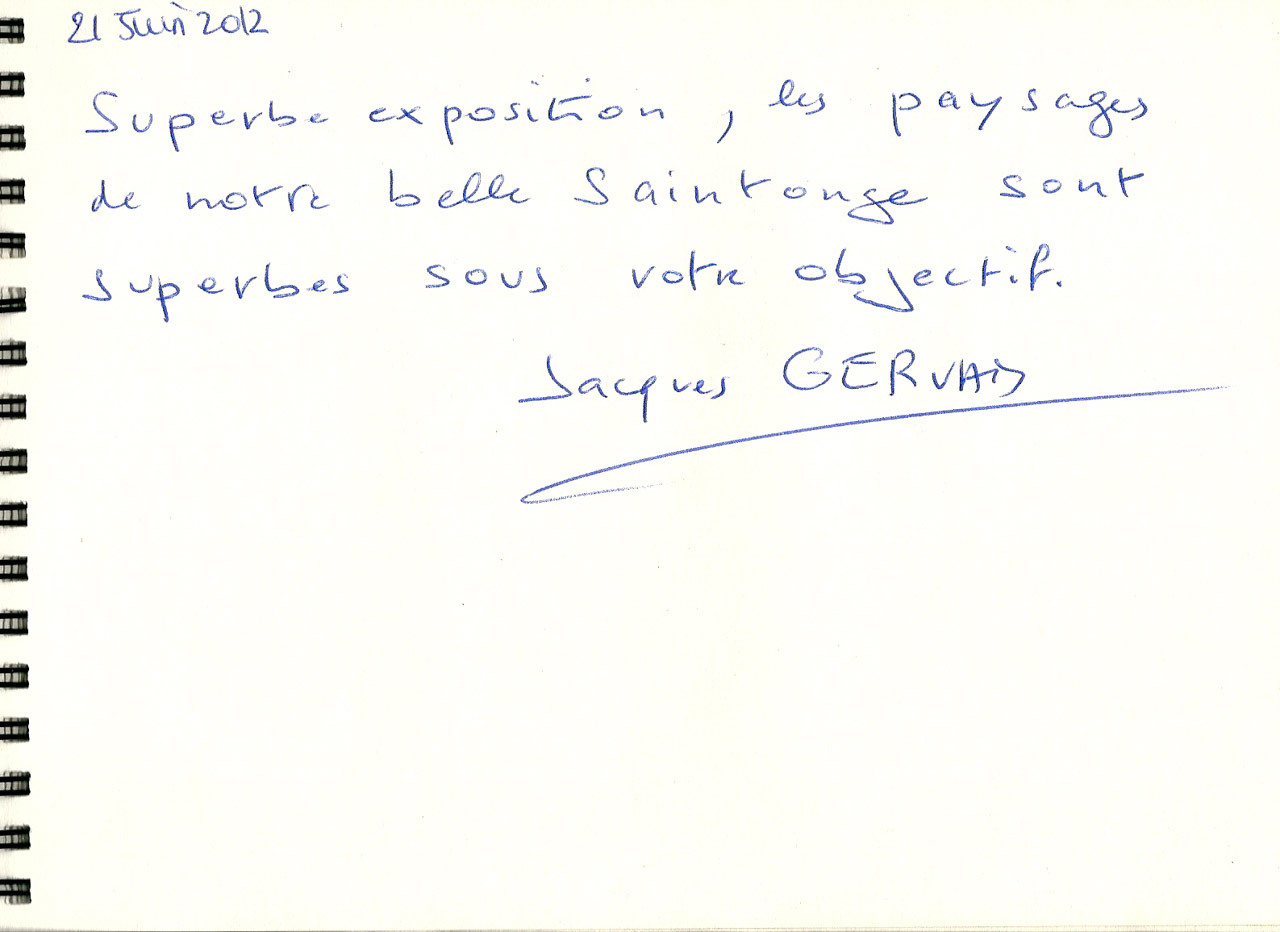 21 Juin 2012
Superbe exposition, les paysages
de notre belle Saintonge sont
superbes sous votre objectif.
Jacques GERVAIS